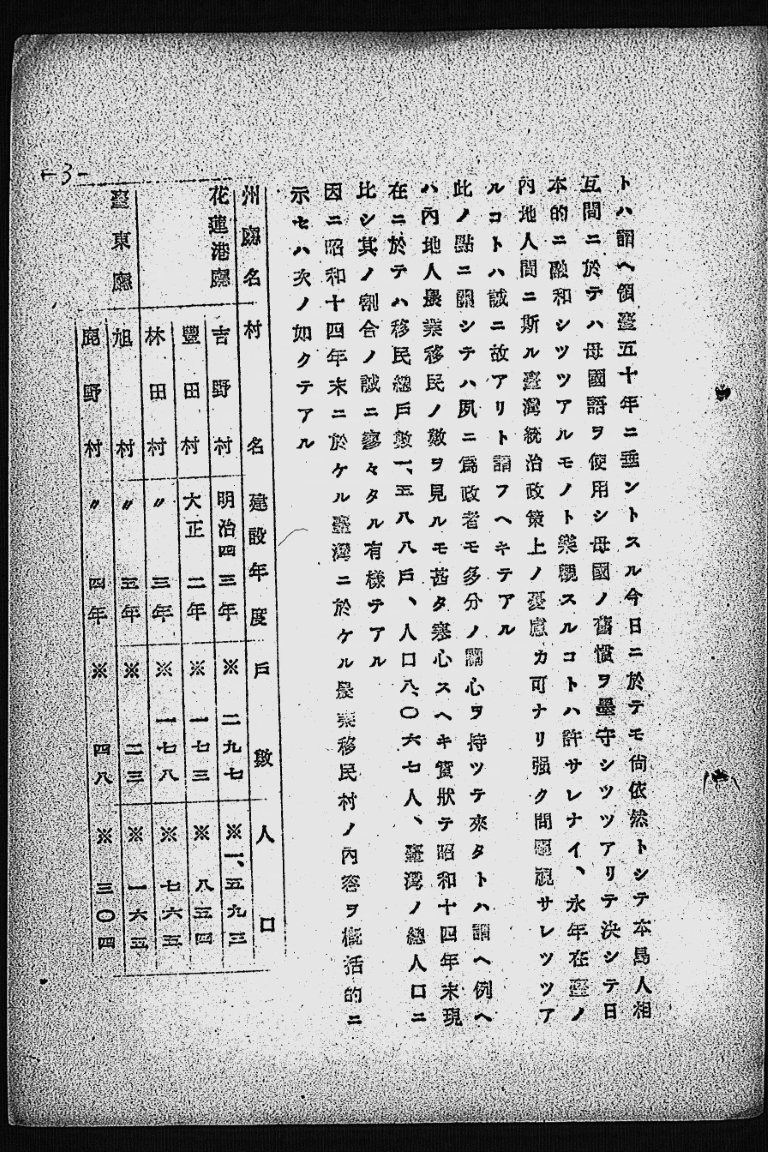 -3-
トハ謂ヘ領臺五十年ニ垂ントスル今日ニ於テモ尚依然トシテ本島人相
互間ニ於テハ母國語ヲ使用シ母國ノ舊慣ヲ墨守シツツアリテ決シテ日
本的ニ融和シツツアルモノト樂觀スルコトハ許サレナイ、永年在臺ノ
內地人間ニ斯ル臺灣統治政策上ノ憂慮カ可ナリ强ク問題視サレツツア
ルコトハ誠ニ故アリト謂フヘキテアル
此ノ點ニ關シテハ夙ニ爲政者モ多分ノ關心ヲ持ツテ來タトハ謂ヘ例ヘ
ハ內地人農業移民ノ數ヲ見ルモ甚タ寒心スヘキ實狀テ昭和十四年末現
在ニ於テハ移民總戶數一、五八八戶、人口八、〇六七人、臺灣ノ總人口ニ
比シ其ノ割合ノ誠ニ寥々タル有樣テアル
因ニ昭和十四年末ニ於ケル臺灣ニ於ケル農業移民村ノ內容ヲ概括的ニ
示セハ次ノ如クテアル
州廳名 村名 建設年度 戶數 人口
花蓮港廳 吉野村 明治四三年 ※二九七 ※一、五九三
豐田村 大正二年 ※一七三 ※八五四
林田村 〃三年 ※一七八 ※七六五
臺東廳 旭村 〃五年 ※二三 ※一六五
鹿野村 〃四年 ※四八 ※三〇四